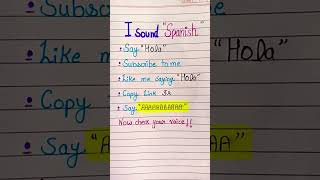 I sound "Spanish"
• Say "Hola"
• Subscribe to me
• Like me saying "Hola"
• Copy Link 3x
• Say "AAAAAAAAAA"
Now check your voice!!
"Hola"
• Copy
• Say "A
AA"